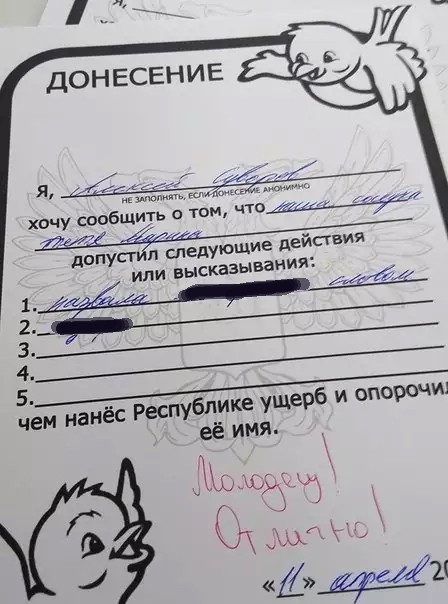 ДОНЕСЕНИЕ
Я, Алексей Суворов
НЕ ЗАПОЛНЯТЬ, ЕСЛИ ДОНЕСЕНИЕ АНОНИМНО
хочу сообщить о том, что наша
тётя Марина
допустил следующие действия
или высказывания:
1. назвала словом
2.
3.
4.
5.
чем нанёс Республике ущерб и опорочил
её имя.
Молодец!
Отлично!
«11» апреля 20